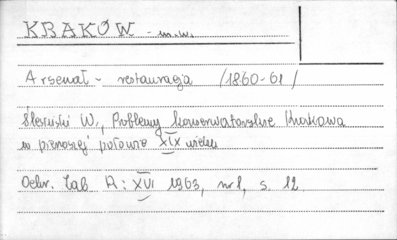 KRAKÓW - m.w.
Arsenał - restauracja /1860-61/
Ślesiński W., Problemy konserwatorskie Krakowa
w pierwszej połowie XIX wieku
Ochr. Zab. R: XVI 1963, nr 1, s. 12